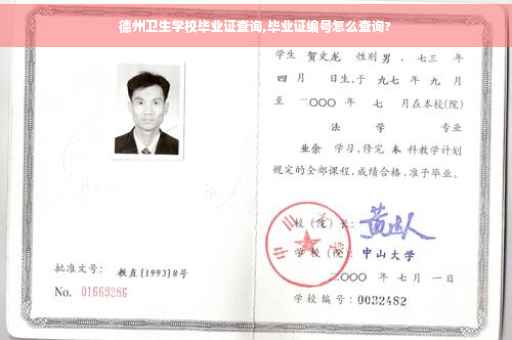 德州卫生学校毕业证查询,毕业证编号怎么查询?
学生 贺文龙 性别 男 、七三 年
四 月 日生,于 九七 年 九 月
至 二〇〇〇 年 七 月在本校(院)
法 学 专业
业余 学习,修完 本 科教学计划
规定的全部课程,成绩合格,准予毕业。
校(院)长:
学校(院): 中山大学
二〇〇〇 年 七 月 一 日
学校编号: 0032482
批准文号: 教直[1993]8号
No. 01669286